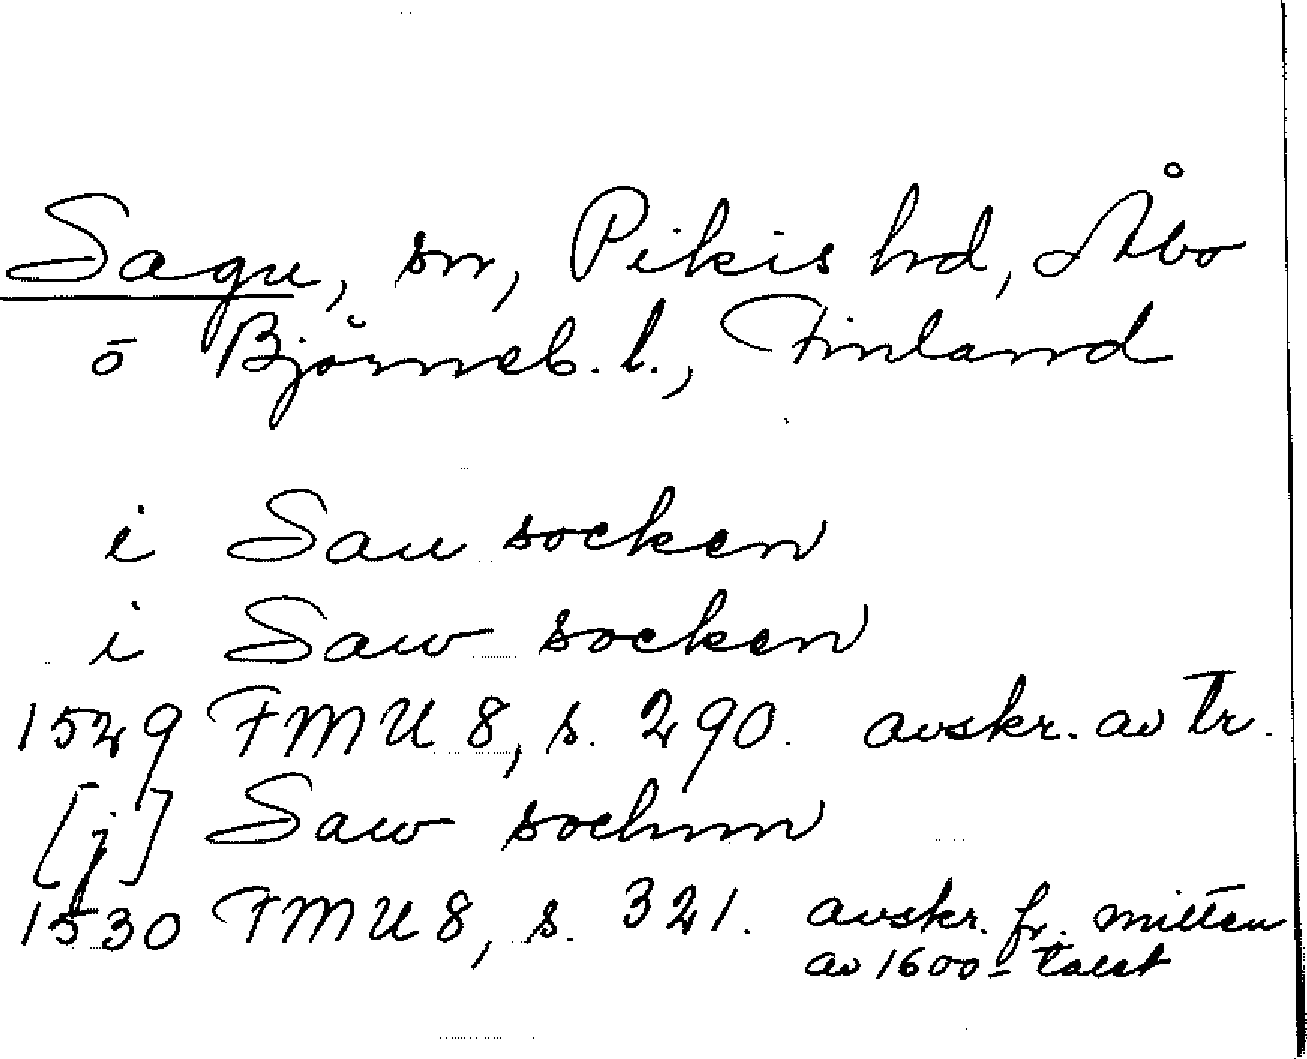 Sagu, sn, Pikis hd, Åbo
o Björneb. l., Finland
i Sau socken
i Saw socken
1529 FMU 8, s. 290. avskr. av tr.
[j] Saw sochnn
1530 FMU 8, s. 321. avskr. fr. mitten
av 1600-talet